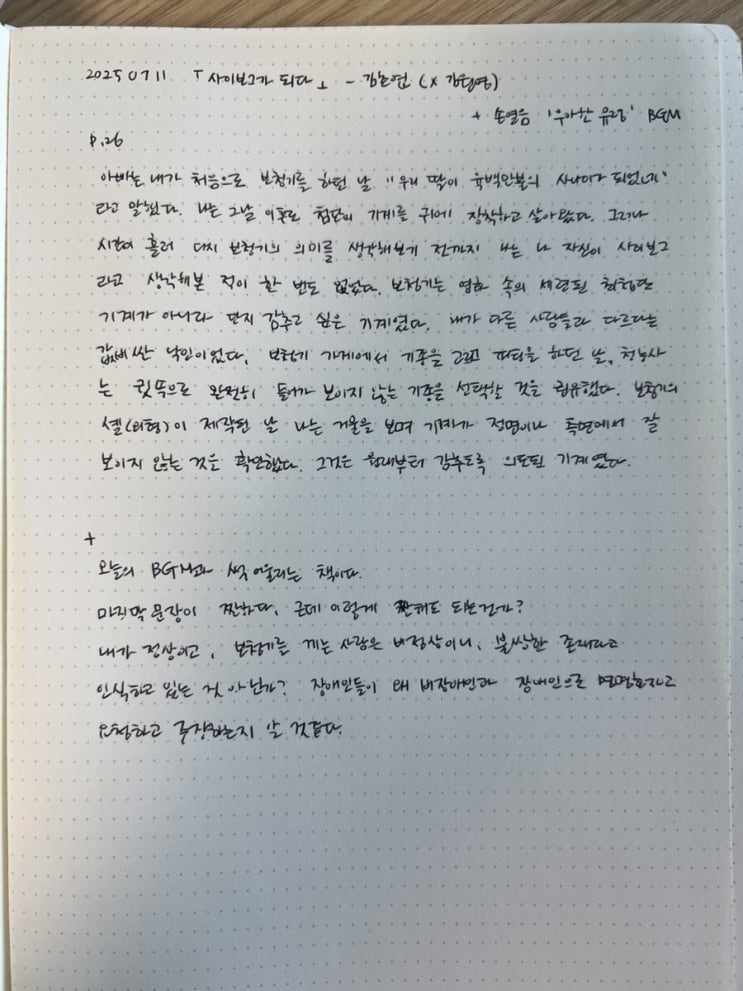 2025 07 11 「사이보그가 되다」 - 김초엽 (X 김원영)
+ 손열음 '우아한 유령' BGM
p.26
아빠는 내가 처음으로 보청기를 하던 날 "우리 딸이 육백만불의 사나이가 되었네"
라고 말했다. 나는 그날 이후로 첨단의 기계를 귀에 장착하고 살아왔다. 그러나
시간이 흘러 다시 보청기의 의미를 생각해보기 전까지 나는 나 자신이 사이보그
라고 생각해본 적이 한 번도 없었다. 보청기는 영화 속의 세련된 최첨단
기계가 아니라 단지 감추고 싶은 기계였다. 내가 다른 사람들과 다르다는
값비싼 낙인이었다. 보청기 가게에서 기종을 고르고 피팅을 하던 날, 청능사
는 귓속으로 완전히 들어가 보이지 않는 기종을 선택할 것을 권유했다. 보청기의
셸(외형)이 제작된 날 나는 거울을 보며 기계가 정면이나 측면에서 잘
보이지 않는 것을 확인했다. 그것은 원래부터 감추도록 의도된 기계였다.
+
오늘의 BGM과 썩 어울리는 책이다.
마지막 문장이 찐하다. 근데 이렇게 해도 되는건가?
내가 정상이고, 보청기를 끼는 사람은 비정상이니, 불쌍한 존재라고
인식하고 있는 것 아닌가? 장애인들이 왜 비장애인과 장애인으로 명명하자고
요청하고 주장하는지 알 것같다.